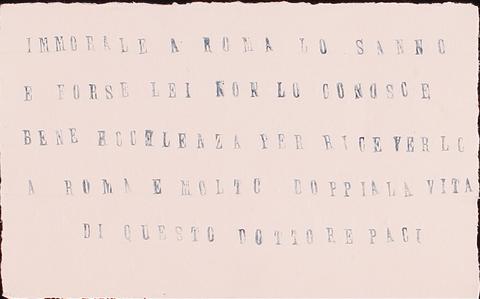 IMMORALE A ROMA LO SANNO
E FORSE LEI NON LO CONOSCE
BENE ECCELENZA PER RICEVERLO
A ROMA E MOLTO DOPPIA LA VITA
DI QUESTO DOTTORE PACI